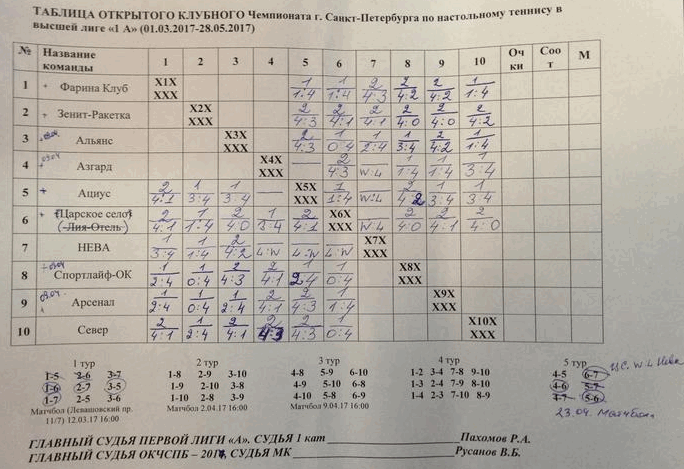 ТАБЛИЦА ОТКРЫТОГО КЛУБНОГО Чемпионата г. Санкт-Петербурга по настольному теннису в
высшей лиге «1 А» (01.03.2017-28.05.2017)
№ Название команды 1 2 3 4 5 6 7 8 9 10 Очки Соот М
1 + Фарина Клуб X1X XXX 1 1:4 1 1:4 2 4:3 2 4:2 2 4:2 1 1:4
2 + Зенит-Ракетка X2X XXX 2 4:3 2 4:1 2 4:1 2 4:0 2 4:0 2 4:2
3 Альянс X3X XXX 2 4:3 1 0:4 1 2:4 1 3:4 2 4:2 1 1:4
4 09.04 + Азгард X4X XXX — 2 4:3 W:L 1 1:4 1 1:4 1 3:4
5 + Ациус 2 4:1 1 3:4 1 3:4 — X5X XXX 1 1:4 W:L 2 4:2 1 3:4 1 3:4
6 + (Царское село) (-Лия-Отель-) 2 4:1 1 1:4 2 4:0 1 3:4 2 4:1 X6X XXX W:L 2 4:0 2 4:1 2 4:0
7 НЕВА 1 3:4 1 1:4 2 4:2 L:W L:W L:W X7X XXX
8 09.04 Спортлайф-ОК 1 2:4 1 0:4 2 4:3 2 4:1 1 2:4 1 0:4 X8X XXX
9 09.04 + Арсенал 1 2:4 1 0:4 1 2:4 2 4:1 2 4:3 1 1:4 X9X XXX
10 Север 2 4:1 1 2:4 2 4:1 2 4:3 2 4:3 1 0:4 X10X XXX
1 тур 2 тур 3 тур 4 тур 5 тур
1-5 2-6 3-7 1-8 2-9 3-10 4-8 5-9 6-10 1-2 3-4 7-8 9-10 4-5 6-7 ЦС. W:L Нева
1-6 2-7 3-5 1-9 2-10 3-8 4-9 5-10 6-8 1-3 2-4 7-9 8-10 4-6 5-7
1-7 2-5 3-6 1-10 2-8 3-9 4-10 5-8 6-9 1-4 2-3 7-10 8-9 4-7 5-6
Матчбол (Левашовский пр. Матчбол 2.04.17 16:00 Матчбол 9.04.17 16:00 23.04. Матчбол
11/7) 12.03.17 16:00
ГЛАВНЫЙ СУДЬЯ ПЕРВОЙ ЛИГИ «А». СУДЬЯ 1 кат Пахомов Р.А.
ГЛАВНЫЙ СУДЬЯ ОКЧСПБ – 2017, СУДЬЯ МК Русанов В.Б.